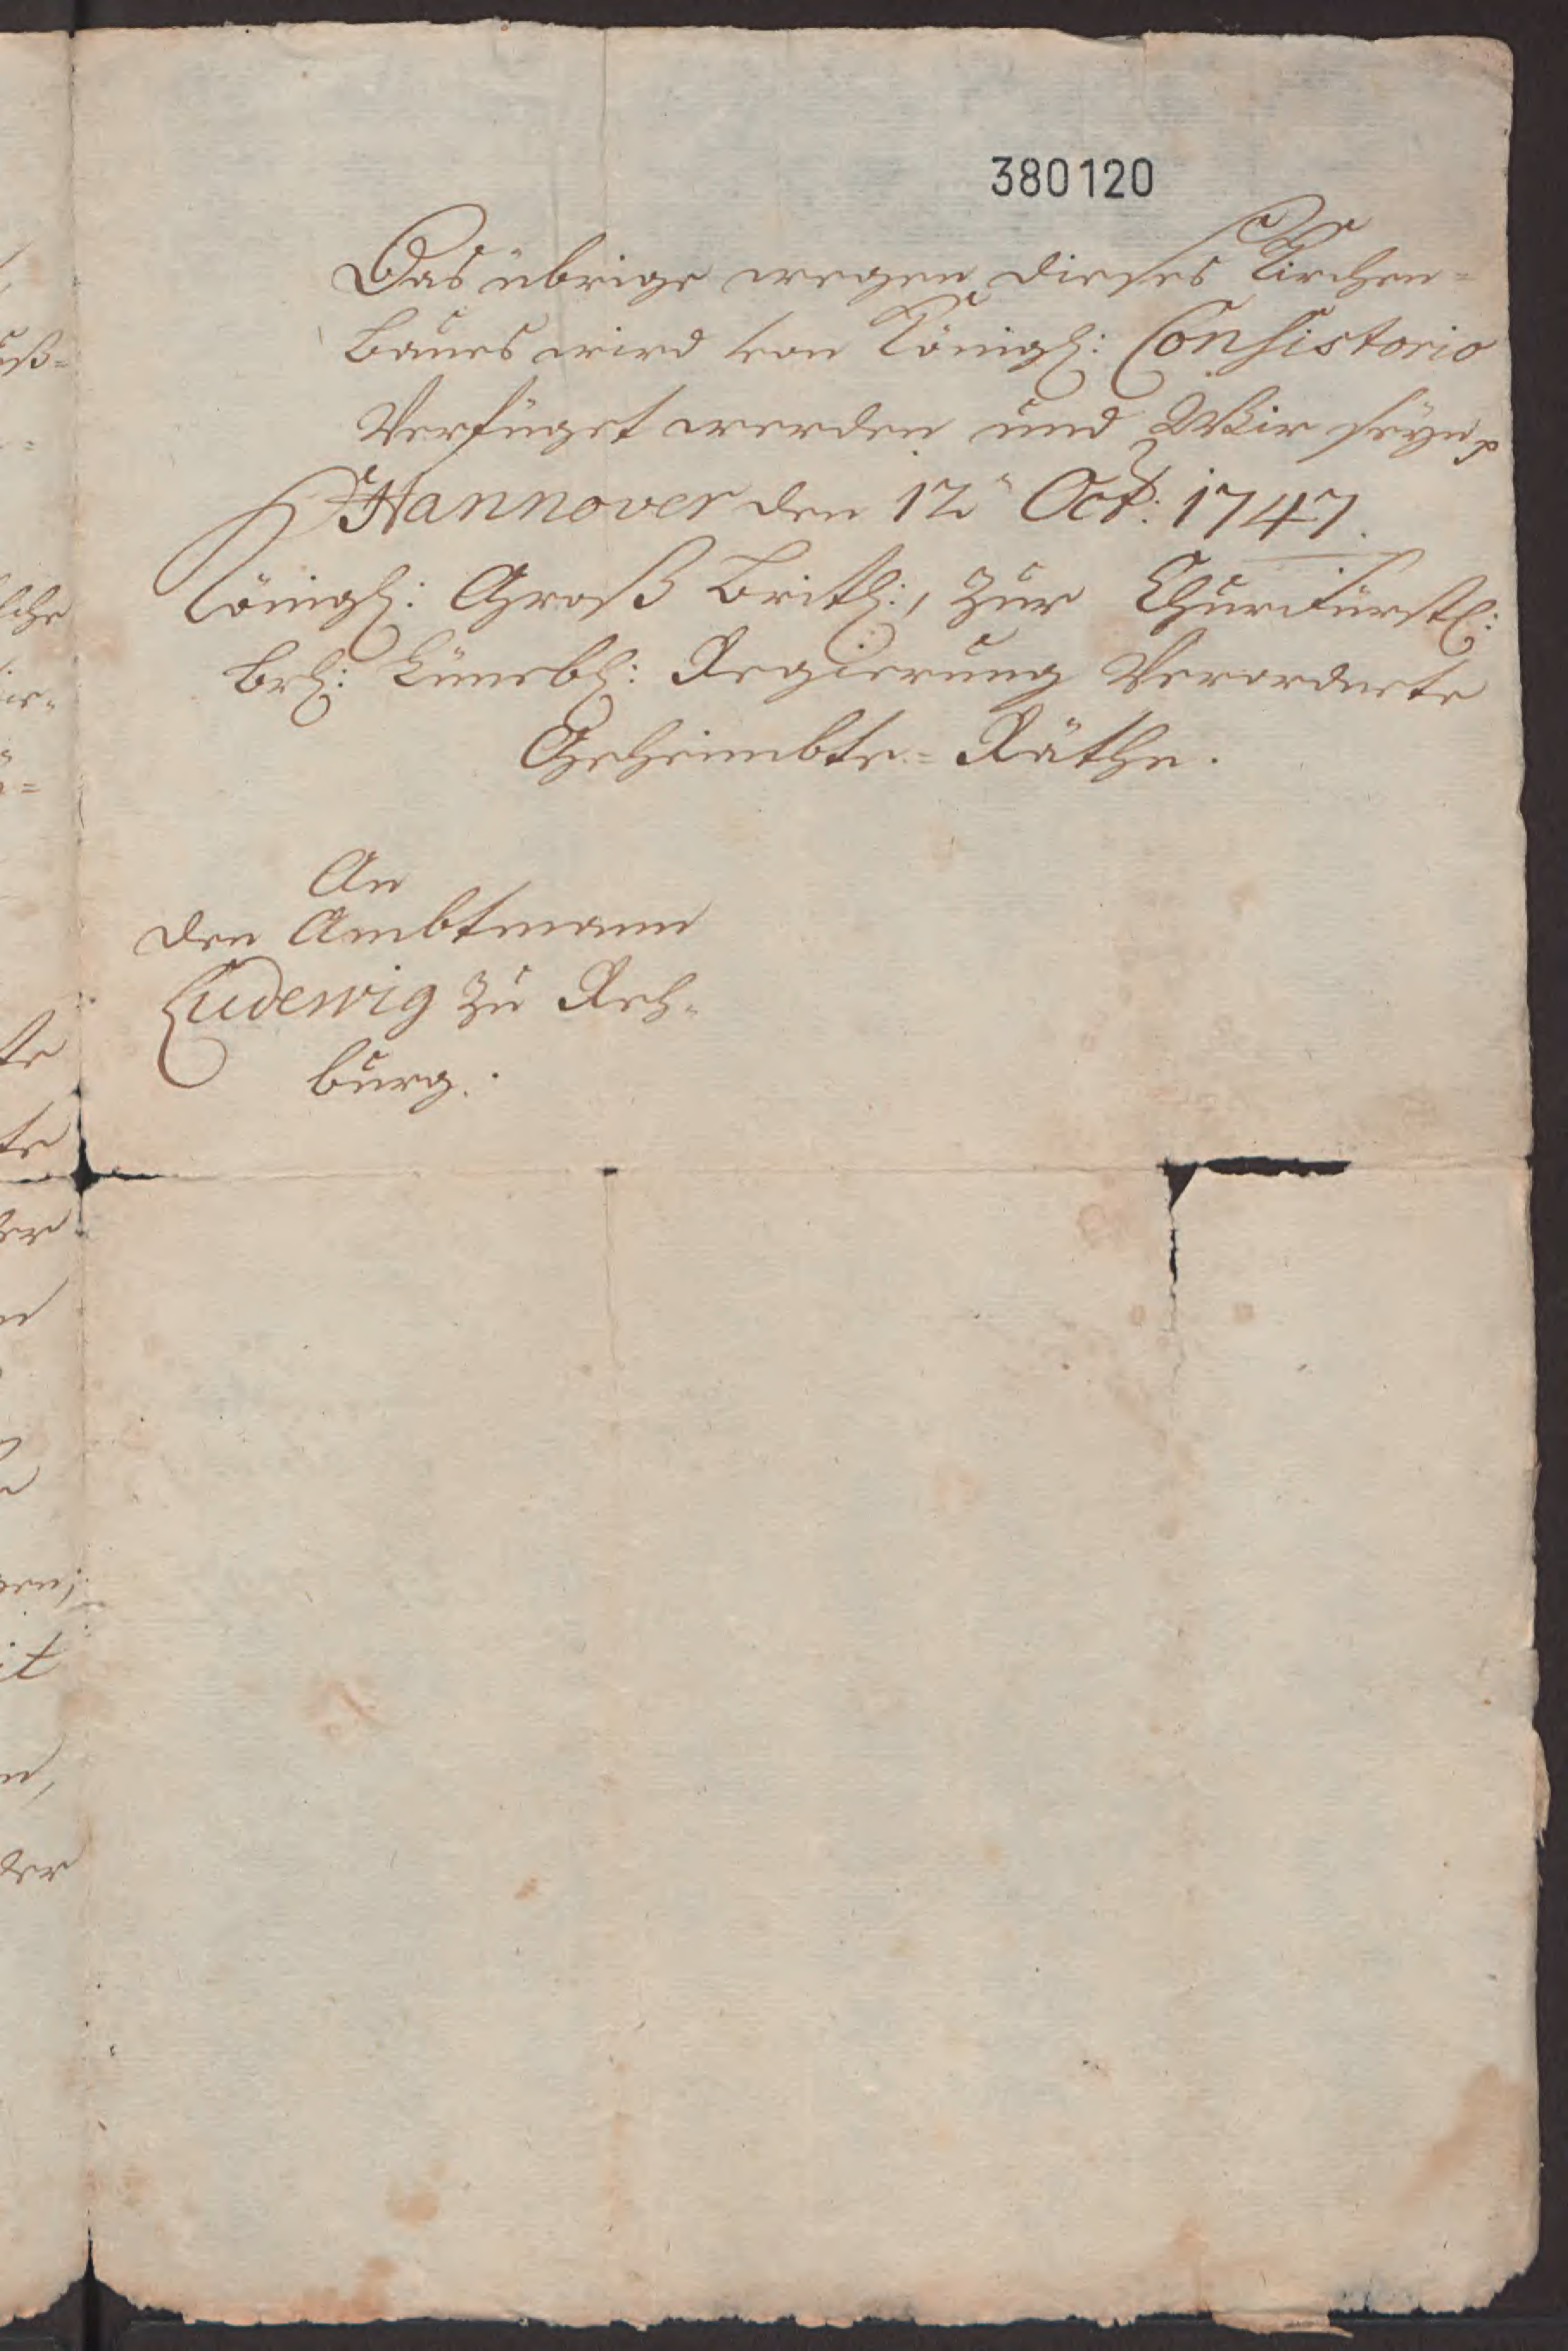 380120
Das übrige wegen dieses Kirchen=
Baues wird von Königl: Consistorio
Verfüget werden und Wir seyn p
Hannover den 12. Oct: 1747.
Königl: Groß Britl:, zur ChurFürstl:
Brl: Lünebl: Regierung Verordnete
Geheimbte= Räthe.
An
den Ambtmann
Ludewig zu Reh=
burg.